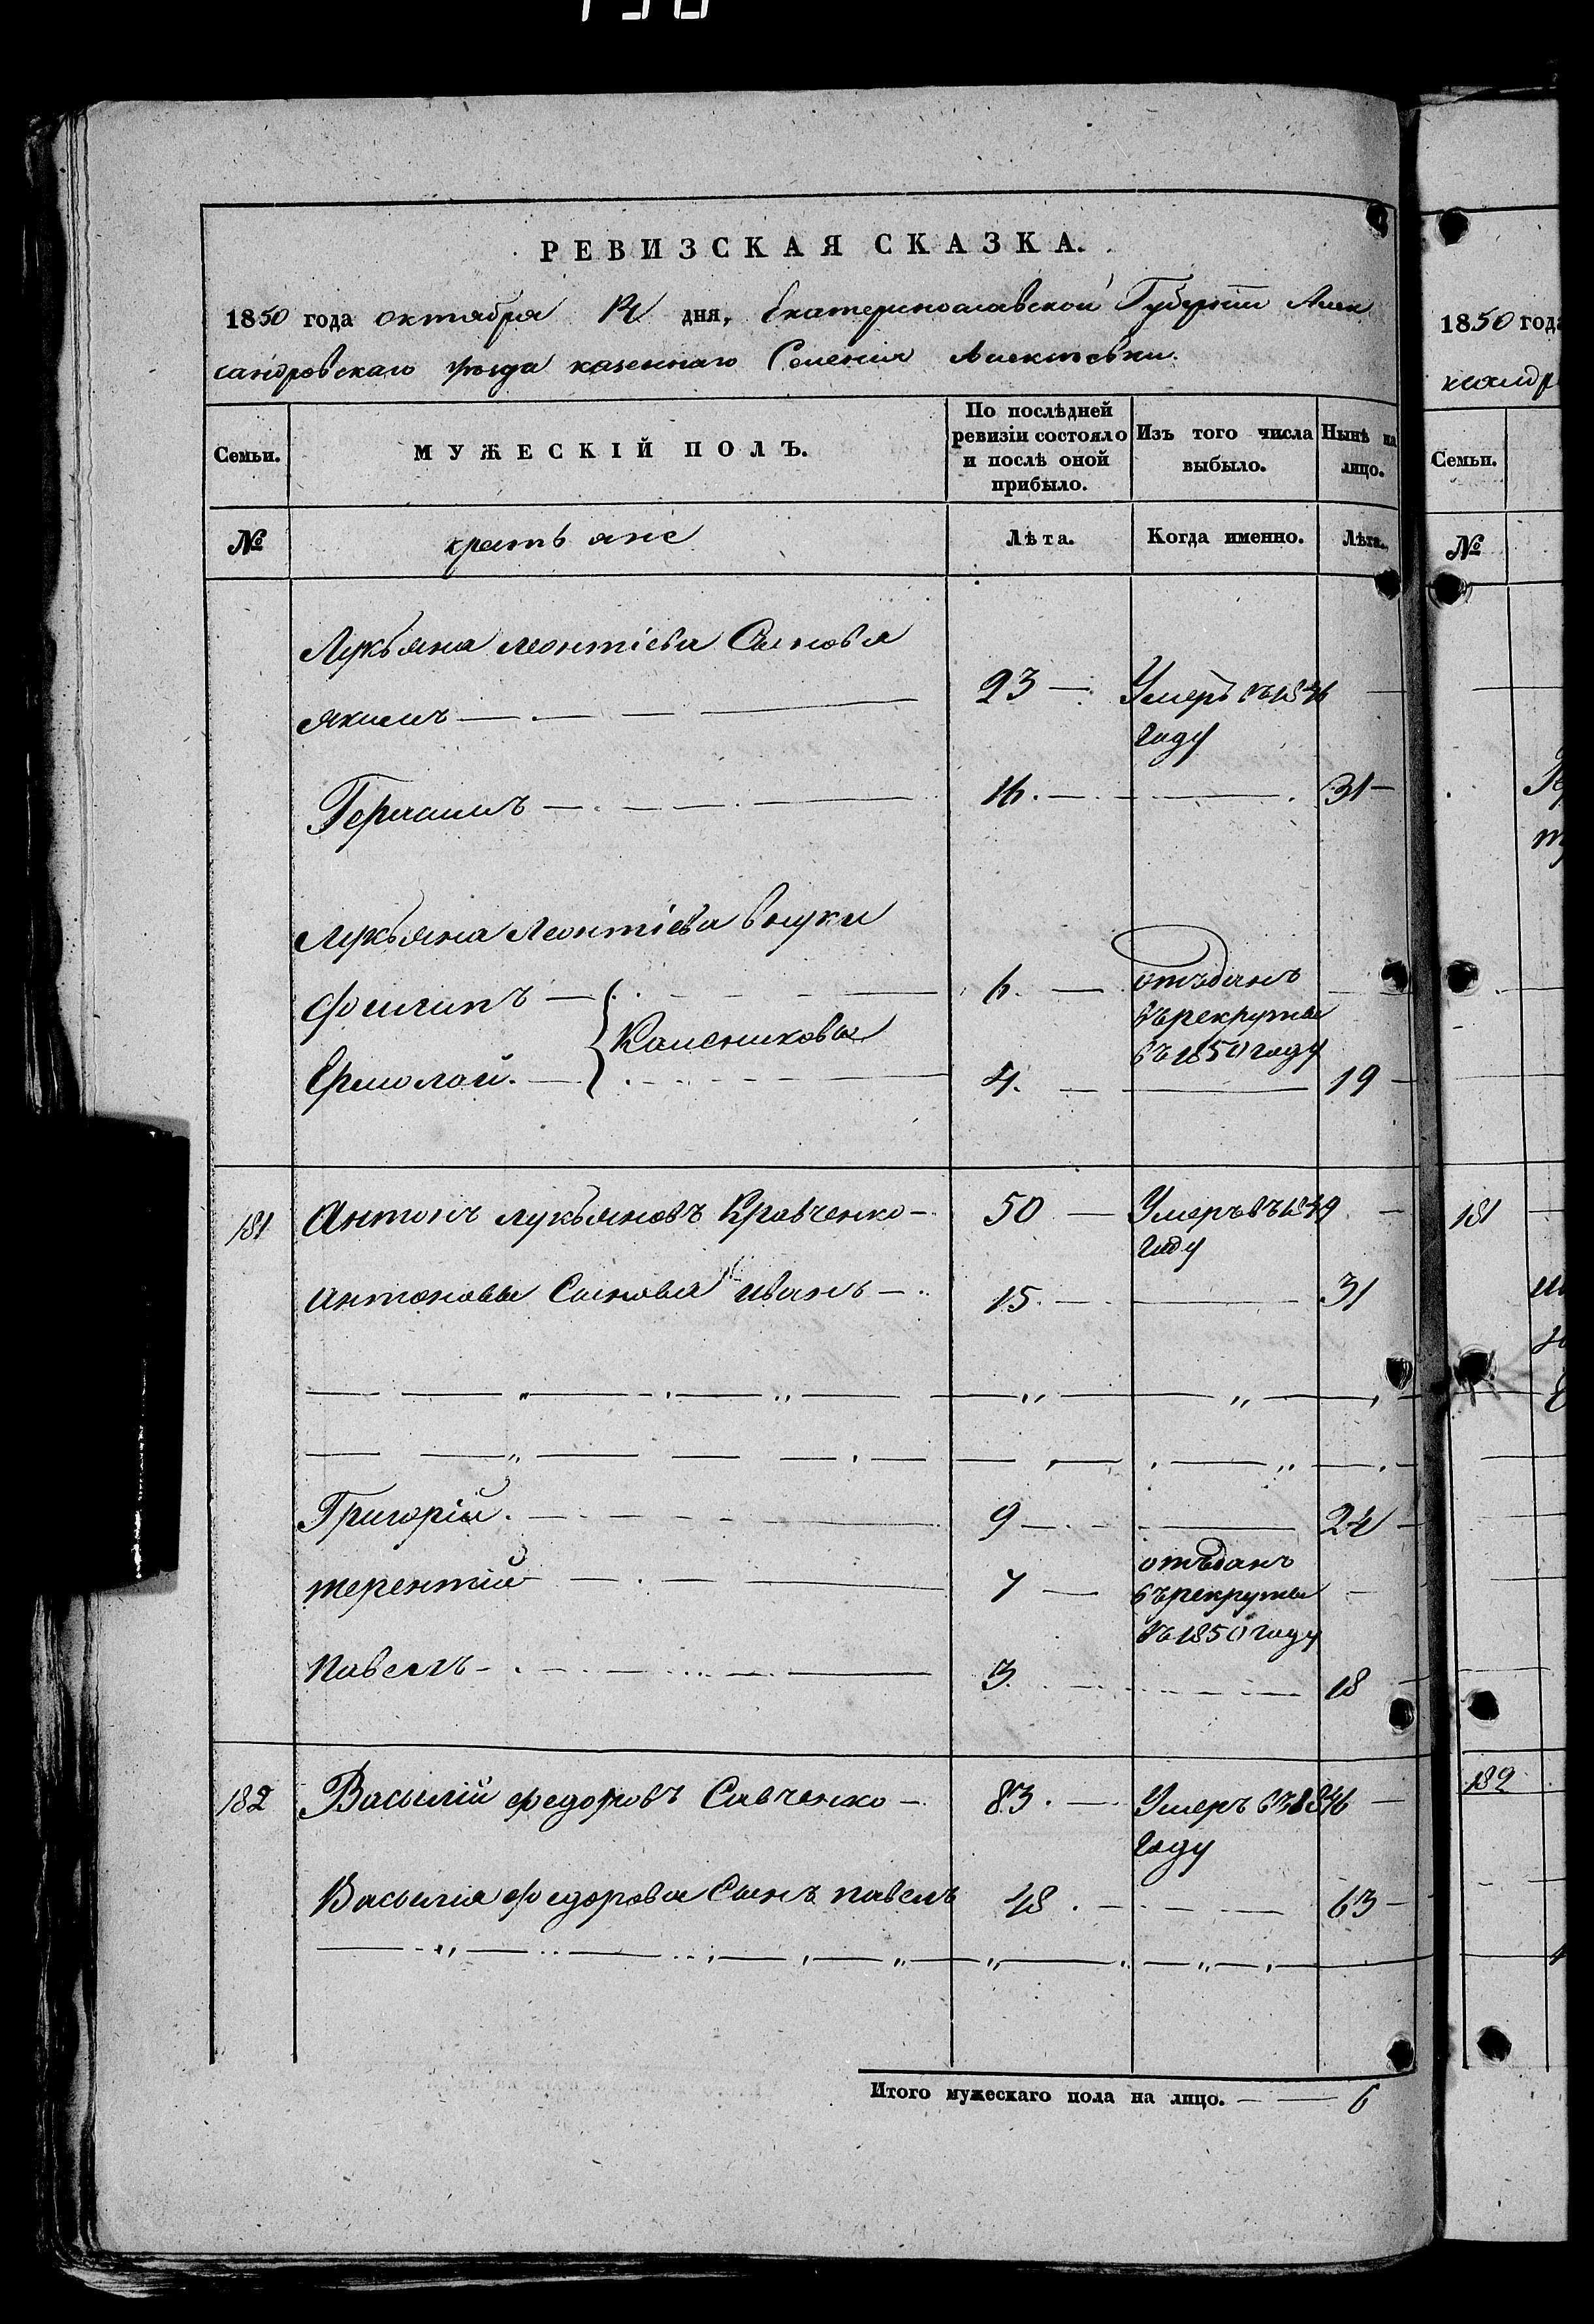 РЕВИЗСКАЯ СКАЗКА.
1850 года октября дня, Екатеринославской Губернии Алек
сандровскаго уѣзда казеннаго Селенія
Семьи.
МУЖЕСКІЙ ПОЛЪ.
По послѣдней
ревизіи состояло
и послѣ оной
прибыло.
Изъ того числа
выбыло.
Нынѣ на
лицо.
№
крестьяне
Лѣта.
Когда именно.
Лѣта.
Лукьяна Леонтіева Сыновья
Якимъ 23 Умеръ въ 1846
году
Герасимъ 16. 31
Лукьяна Леонтіева внуки
Филипъ 6. отъданъ
въ рекруты
въ 1850 году
Калениковы
Ермолай. 4. 19
181 Антонъ Лукьяновъ Кравченко 50 Умеръ въ 1849
году
Антоновы Сыновья Иванъ 15. 31
Григорій. 9 24
Терентій 7 отъданъ
въ рекруты
въ 1850 году
Павелъ 3. 18
182 Василій Федоровъ Савченко 83. Умеръ въ 1846
году
Василія Федорова Сынъ Павелъ 48. 63
Итого мужескаго пола на лицо. 6
1850 года
Семьи.
№
181
182